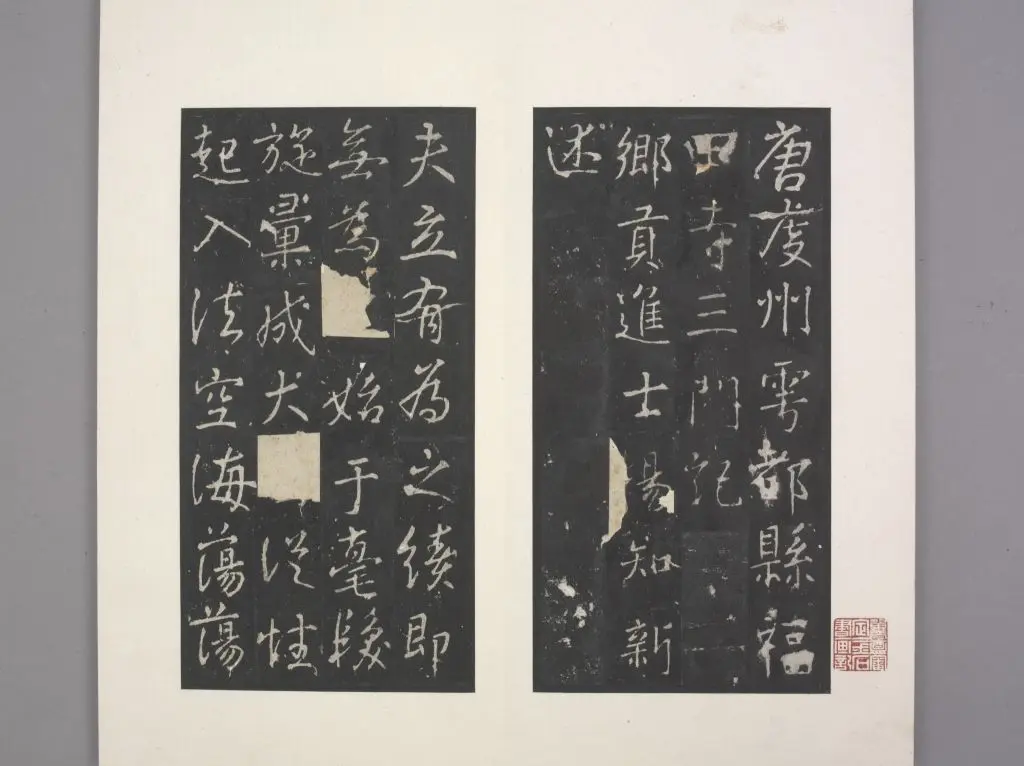 唐虔州雩都縣福
田寺三門記
鄉貢進士楊知新
述
夫立有為之績即
無為 始于毫釐
旋彙成大 從性
起入法空海蕩蕩